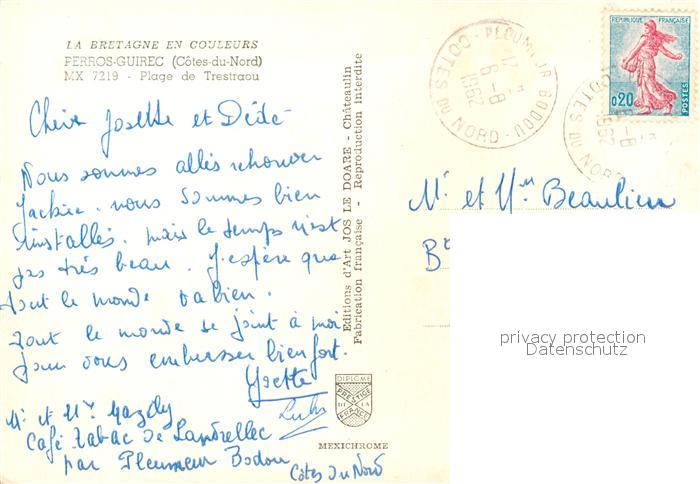 LA BRETAGNE EN COULEURS
PERROS-GUIREC (Côtes-du-Nord)
MX 7219 - Plage de Trestraou
Chers Josette et Dédé
Nous sommes allés retrouver
nous sommes bien
installés. mais le temps n'est
pas très beau. J'espère que
tout le monde va bien.
Tout le monde se joint à moi
pour vous embrasser bien fort.
Yvette
Lulu
Mr et Mme
Café Tabac de Landrellec
par Pleumeur Bodou
Côtes du Nord
Editions d'Art JOS LE DOARE - Châteaulin
Fabrication française - Reproduction interdite
DIPLOME
PRESTIGE
DE LA
FRANCE
MEXICHROME
PLEUMEUR BODOU
6-8
1962
COTES DU NORD
REPUBLIQUE FRANÇAISE
0,20
POSTES
6-8
1962
COTES DU NORD
Mr et Mme Beaulieu
Bd
privacy protection
Datenschutz